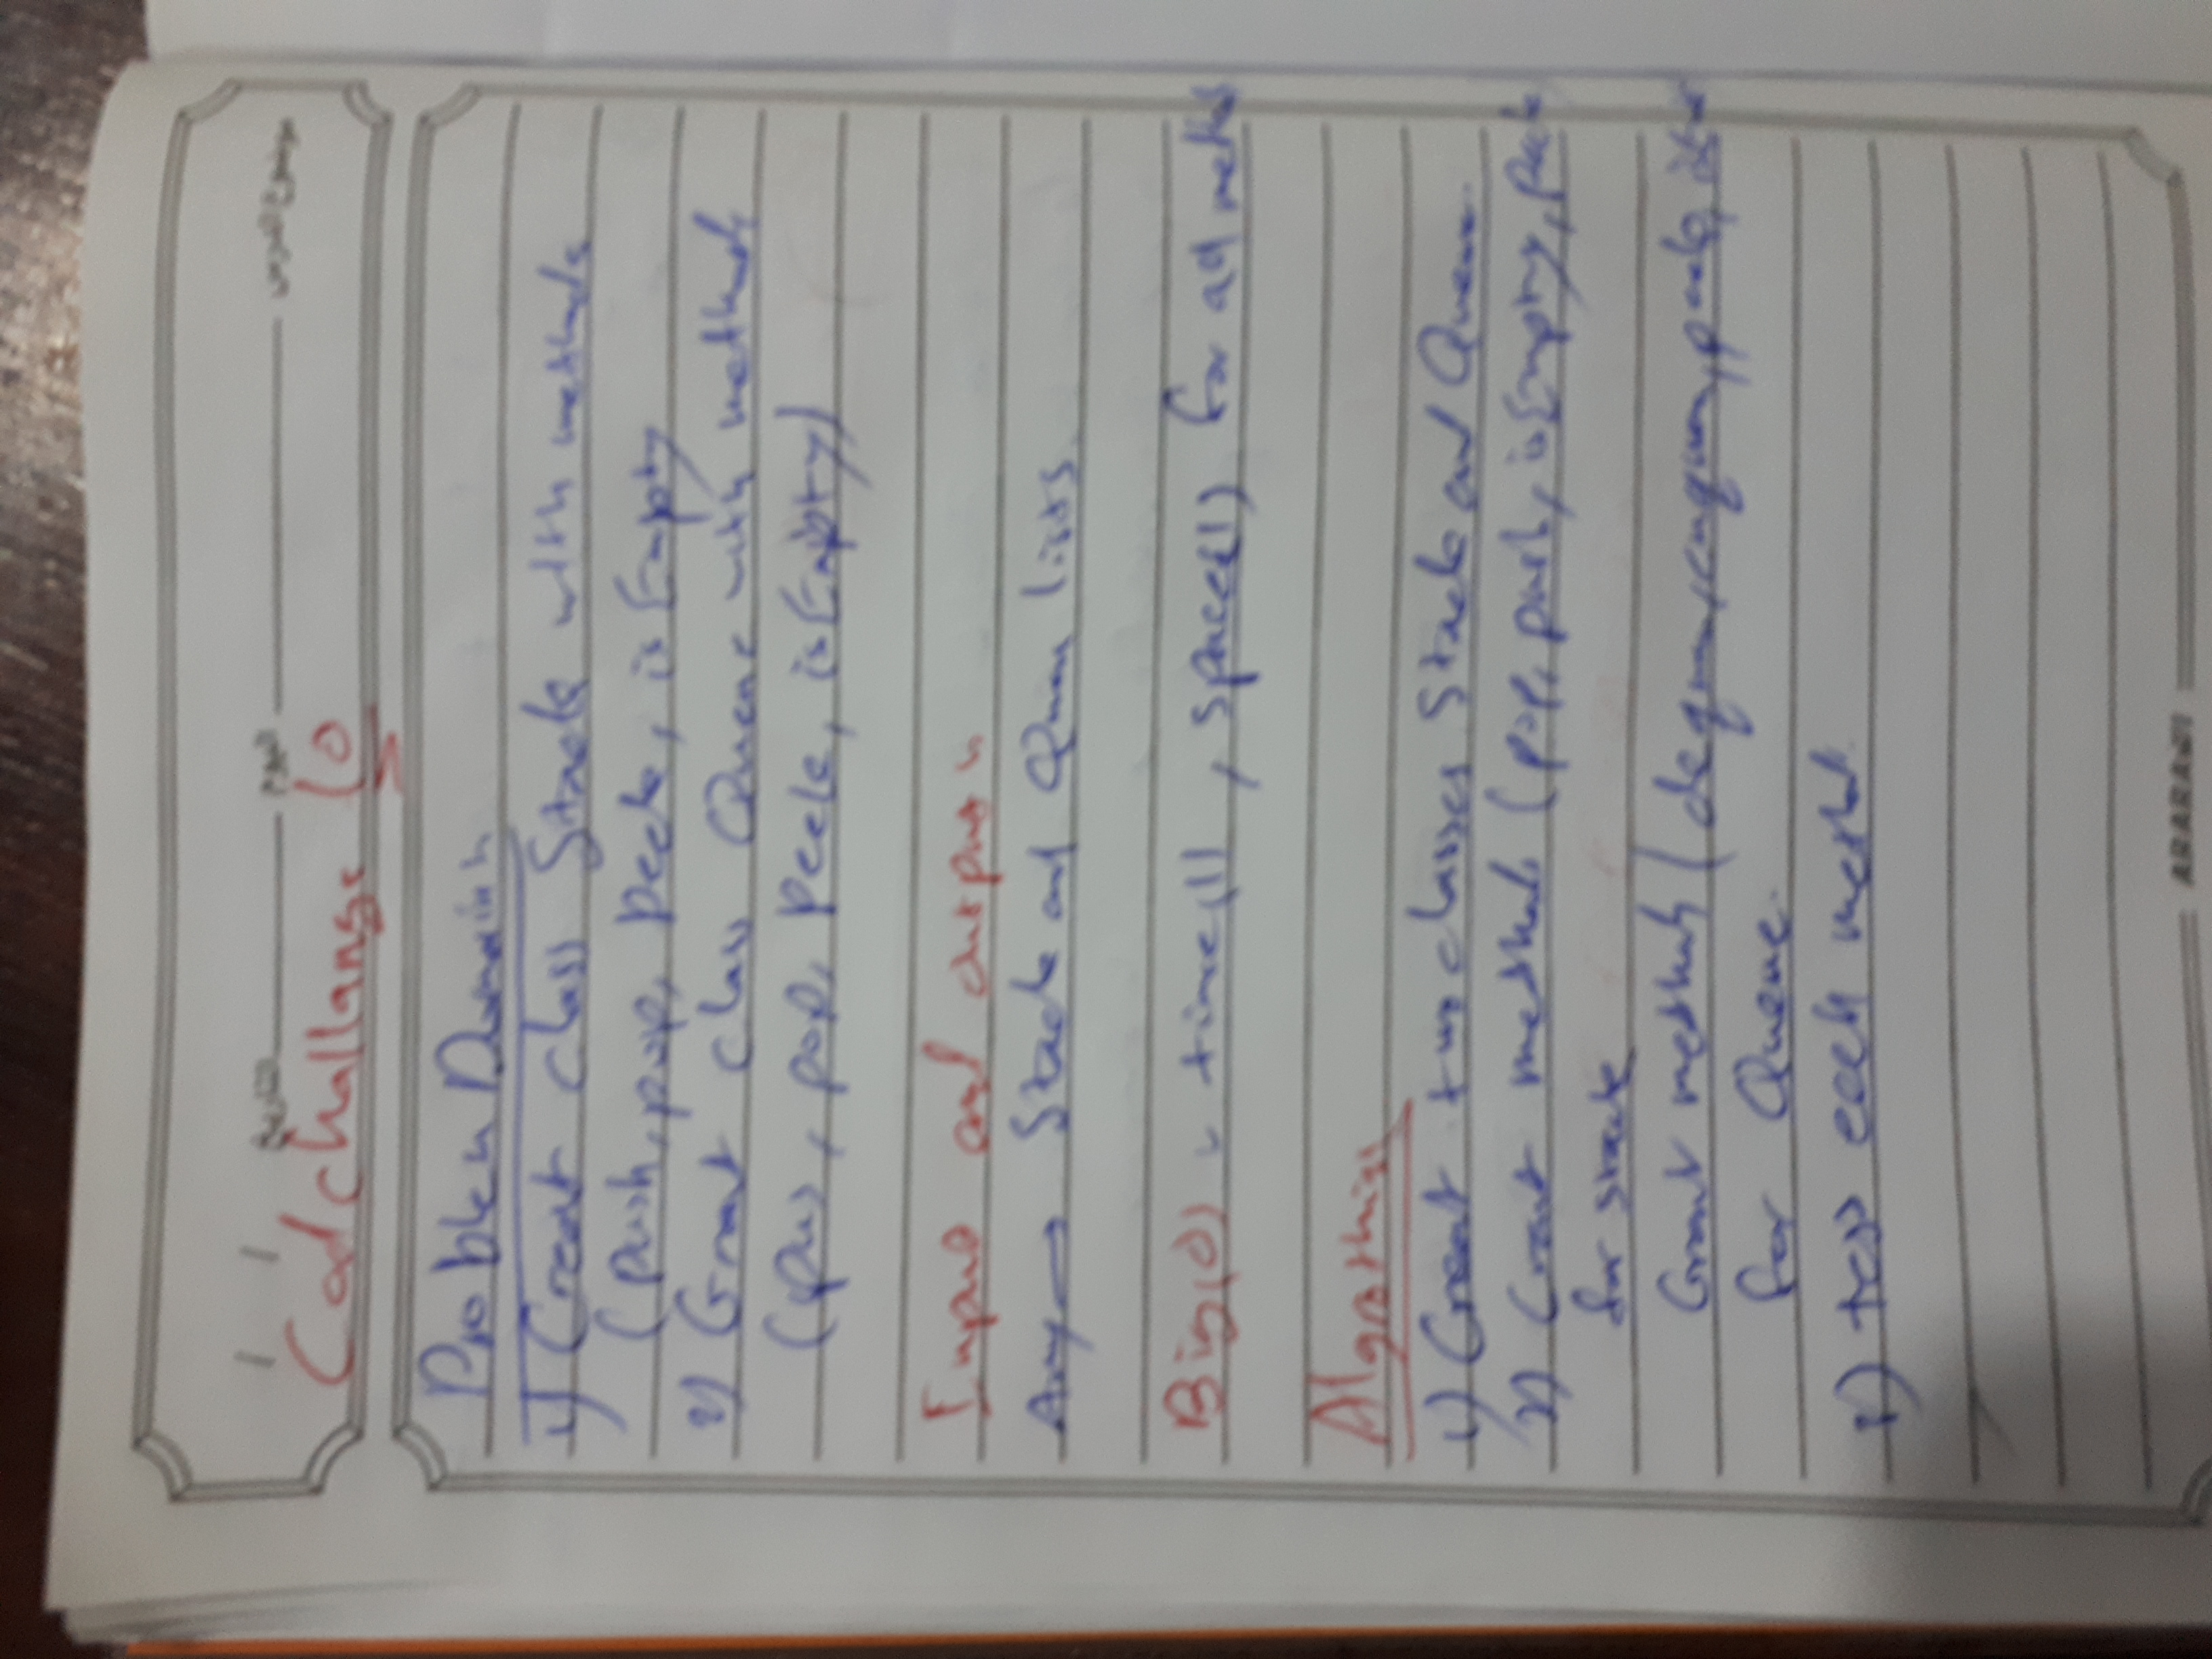 موضوع الدرس اليوم التاريخ / /
Cod challange 10
Problem Domain:
1) Creat class Stack with methods
(push, pop, peek, isEmpty
2) Creat class Queue with methods
(pus, pop, peek, isEmpty)
Input and output:
Any → Stack and Queue lists.
Big(O): time(1), space(1) for all methods
Algorithim
1) Creat two classes Stack and Queue.
2) Creat methods (pop, push, isEmpty, peek
for stack
Creat methods (dequeue, enqueue, peek,
for Queue.
each method.
ARARAT